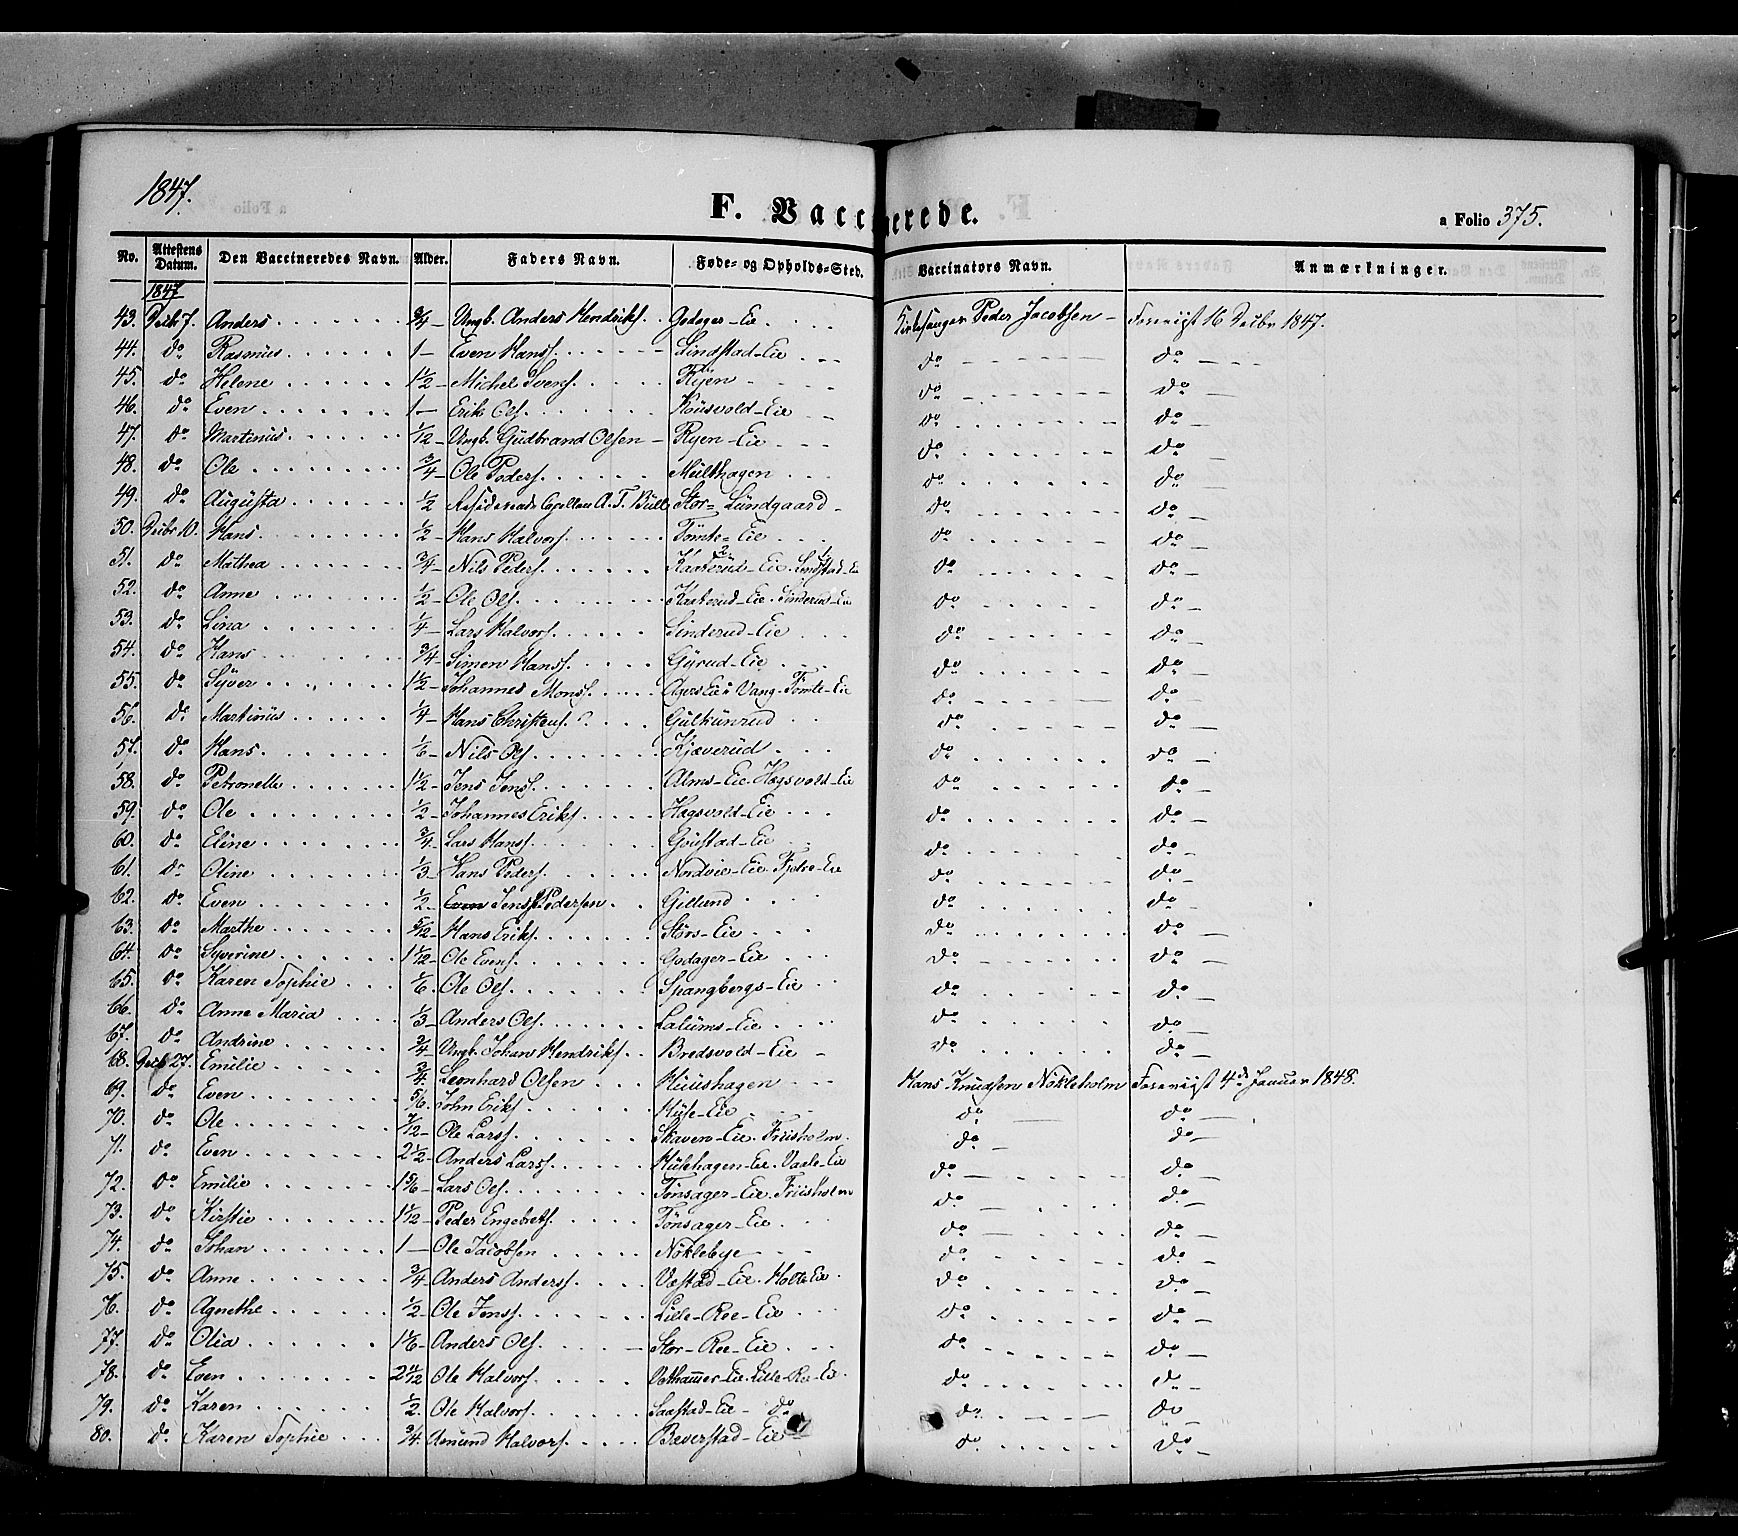 1847.
F. Vaccinerede.
a Folio 375.
No. Attestens Datum. Den Vaccineredes Navn. Alder. Faders Navn. Føde- og Opholds-Sted. Vaccinators Navn. Anmærkninger.
1847
43. Decbr 7. Anders 3/4 Ungk. Anders Hendriks. Godager-Eie Kirkesanger Peder Jacobsen - Foreviist 16 Decbr 1847.
44. do Rasmus 1 - Even Hans. Lindstad-Eie do do
45. do Helene 1 1/2 - Michel Svens. Ryen do do
46. do Even 1 - Erik Ols. Kousvold-Eie do do
47. do Martinus 1/12 - Ungk. Gudbrand Olsen - Ryen-Eie do do
48. do Ole 3/4 - Ole Peders. Multhagen do do
49. do Augusta 1/2 Residerende Capellan A. T. Bull Stor-Lundgaard - do do
50. Decbr 10. Hans 1/2 - Hans Halvors. Tomte-Eie do do
51. do Mathea 3/4 - Nils Peders. Kaaterud-Eie. Lindstad-Eie do do
52. do Anne 1/2 - Ole Ols. Kaaterud-Eie. Sinderud-Eie do do
53. do Lina 1/4 - Lars Halvors. Sinderud-Eie do do
54. do Hans 3/4 - Simen Hans. Gyrud-Eie do do
55. do Syver 1 1/2 - Johannes Mons. Agers Eie i Vang. Tomte-Eie do do
56. do Martinus 1/4 - Hans Christens. Gulkunrud do do
57. do Hans 1/6 - Nils Ols. Kjæverud do do
58. do Petronelle 1 1/2 - Jens Jens. Alms-Eie. Hagsvold-Eie do do
59. do Ole 1/2 - Johannes Eriks. Hagsvold-Eie do do
60. do Eline 3/4 - Lars Hans. Goustad-Eie do do
61. do Oline 1/3 - Hans Peders. Nordvie-Eie. Fjetre-Eie do do
62. do Even 1/2 - Even Jens Pedersen Gillund do do
63. do Marthe 5/12 - Hans Eriks. Störs-Eie do do
64. do Syverine 1 1/12 - Ole Evens. Godager-Eie do do
65. do Karen Sophie 1/6. Ole Ols. Spangbergs-Eie do do
66. do Anne Maria 1/3 - Anders Ols. Lalums-Eie do do
67. do Andrine 2/4 - Ungk. Johan Hendriks. Bredsvold-Eie do do
68. Decb 27. Emilie 3/4. Leonhard Olsen Huushagen Hans Knudsen Nökleholm Foreviist 4de Januar 1848.
69. do Even 5/6. John Eriks. Huse-Eie do do
70. do Ole 7/12 - Ole Lars. Skaven-Eie. Friisholm. do do
71. do Even 2 1/2 - Anders Lars. Hulehagen-Eie. Vaale-Eie do do
72. do Emilie 1 5/6 - Lars Ols. Tönsager-Eie. Friisholm do do
73. do Kirstie 1 1/12 - Peder Engebrets. Tönsager-Eie do do
74. do Johan 1 - Ole Jacobsen Nöklebye do do
75. do Anne 3/4 Anders Anders. Vestad-Eie. Holte Eie do do
76. do Agnethe 1/2 - Ole Jens. Lille-Ree-Eie do do
77. do Olia 1 1/6 - Anders Ols. Stor-Ree-Eie do do
78. do Even 2 4/12 Ole Halvors. Vethammer-Eie. Lille-Re-Ei. do do
79. do Karen 1/2. Ole Halvors. Saastad-Eie - do do do
80. do Karen Sophie 3/4. Amund Halvors. Bæverstad-Eie do do